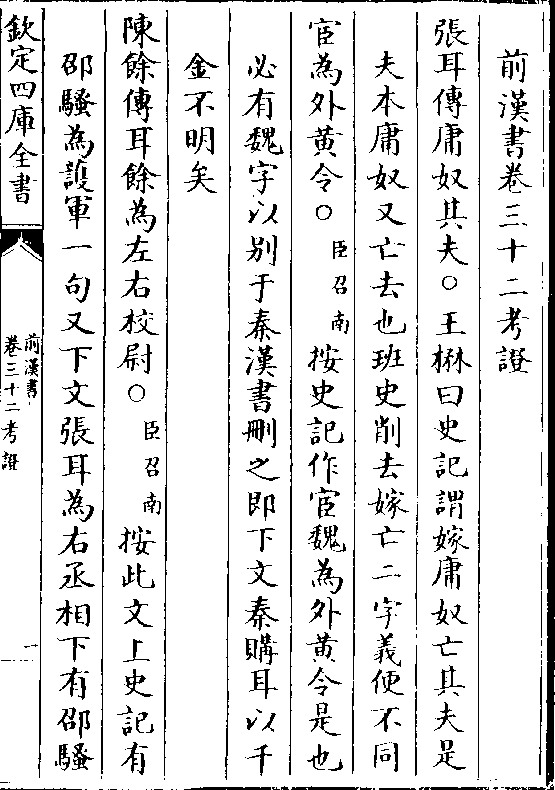 前漢書卷三十二考證
張耳傳庸奴其夫○王楙曰史記謂嫁庸奴亡其夫是
夫本庸奴又亡去也班史削去嫁亡二字義便不同
宦為外黃令○臣召南按史記作宦魏為外黃令是也
必有魏字以別于秦漢書刪之即下文秦購耳以千
金不明矣
陳餘傳耳餘為左右校尉○臣召南按此文上史記有
邵騷為護軍一句又下文張耳為右丞相下有邵騷
欽定四庫全書
前漢書
卷三十二考證
一